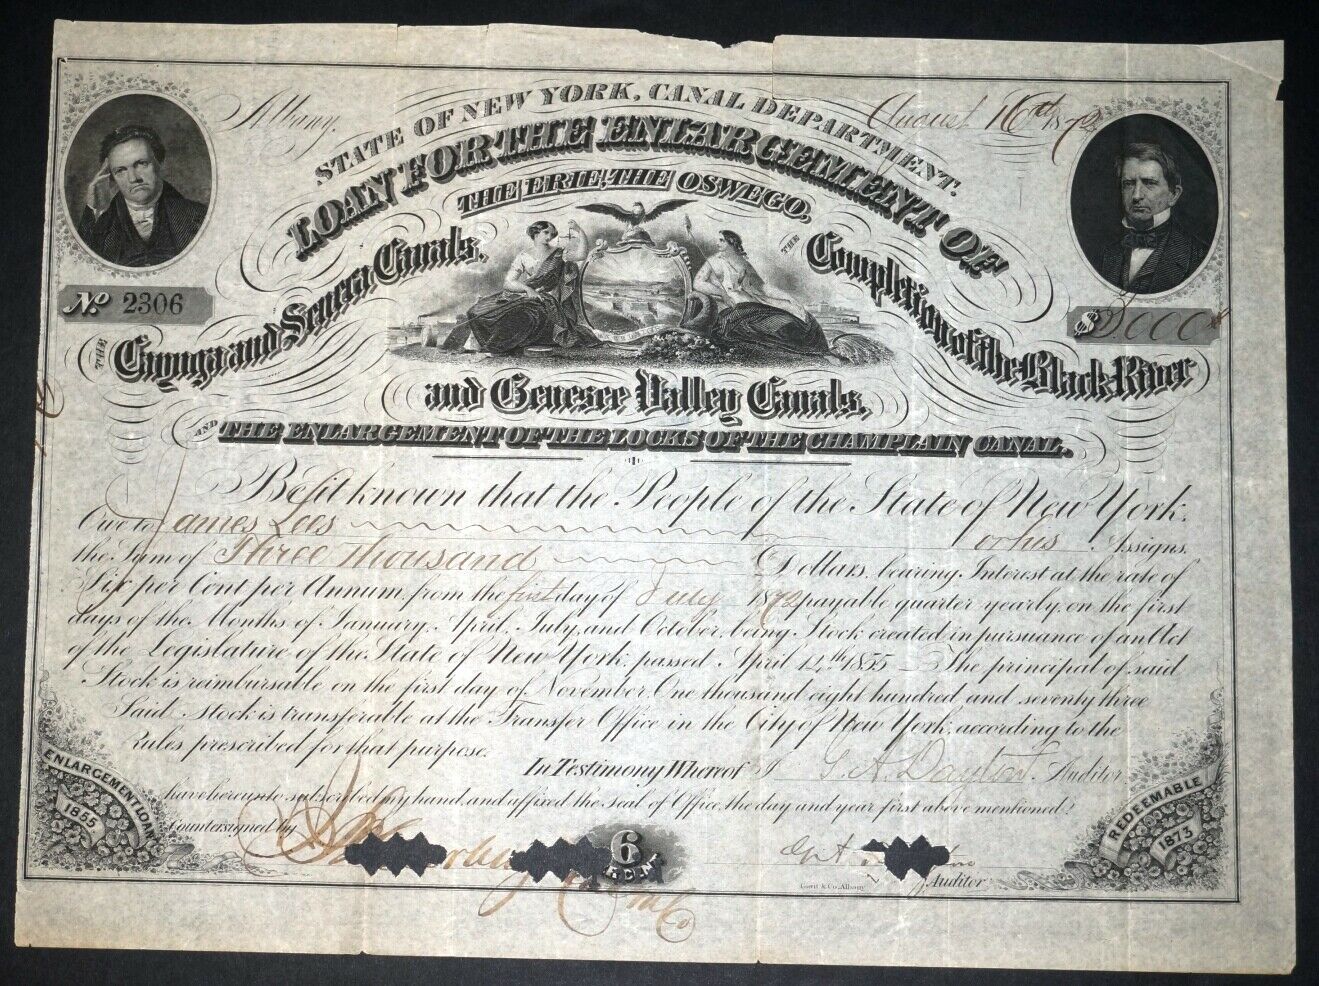 Albany, August 16th 1872
STATE OF NEW YORK, CANAL DEPARTMENT.
LOAN FOR THE ENLARGEMENT OF
THE ERIE, THE OSWEGO,
THE Cayuga and Seneca Canals, THE Completion of the Black River
No. 2306
$3,000
and Genesee Valley Canals,
AND THE ENLARGEMENT OF THE LOCKS OF THE CHAMPLAIN CANAL.
Be it known that the People of the State of New York,
Owe to James Lees or his Assigns,
the Sum of Three Thousand Dollars, bearing Interest at the rate of
Six per Cent per Annum, from the first day of July 1872 payable quarter yearly, on the first
days of the Months of January, April, July, and October, being Stock created in pursuance of an Act
of the Legislature of the State of New York, passed April 12th 1855 The principal of said
Stock is reimbursable on the first day of November, One thousand eight hundred and seventy three
Said Stock is transferable at the Transfer Office in the City of New York, according to the
rules prescribed for that purpose.
In Testimony Whereof I G. A. Dayton, Auditor
have hereunto subscribed my hand, and affixed the seal of Office, the day and year first above mentioned.
Countersigned by
6
Auditor
Gavit & Co. Albany
ENLARGEMENT LOAN
1855
REDEEMABLE
1873